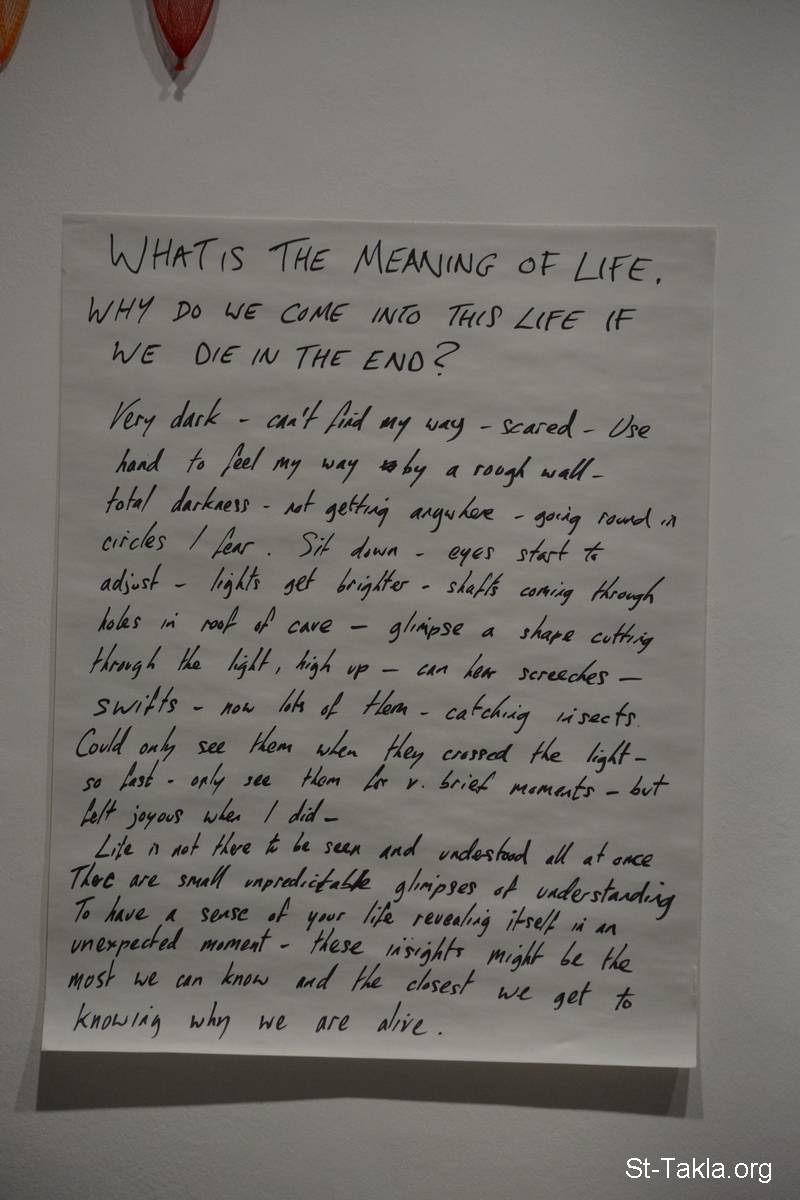 WHAT IS THE MEANING OF LIFE.
WHY DO WE COME INTO THIS LIFE IF
WE DIE IN THE END?
Very dark - can't find my way - scared - Use
hand to feel my way by a rough wall -
total darkness - not getting anywhere - going round in
circles I fear. Sit down - eyes start to
adjust - lights get brighter - shafts coming through
holes in roof of cave - glimpse a shape cutting
through the light, high up - can hear screeches -
swifts - now lots of them - catching insects.
Could only see them when they crossed the light -
so fast - only see them for v. brief moments - but
felt joyous when I did -
Life is not there to be seen and understood all at once
There are small unpredictable glimpses of understanding
To have a sense of your life revealing itself in an
unexpected moment - these insights might be the
most we can know and the closest we get to
knowing why we are alive.
St-Takla.org